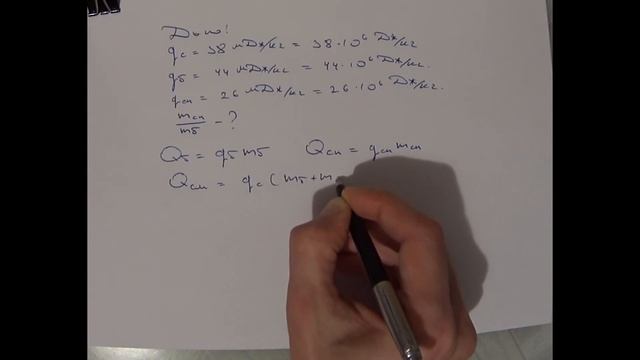 Дано:
qс = 38 мДж/кг = 38·10⁶ Дж/кг
qб = 44 мДж/кг = 44·10⁶ Дж/кг.
qсп = 26 мДж/кг = 26·10⁶ Дж/кг.
mсп/mб - ?
Qб = qб mб Qсп = qсп mсп
Qсм = qс (mб + m